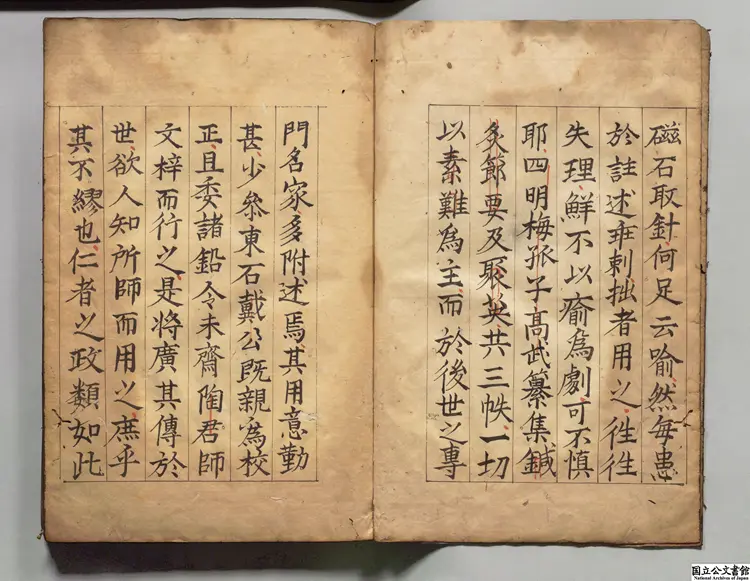 磁石取針何足云喻然每患
於註述乖刺拙者用之徃徃
失理鮮不以瘉為劇可不慎
耶四明梅孤子高武纂集鍼
灸節要及聚英共三帙一切
以素難為主而於後世之專
門名家多附述焉其用意勤
甚少叅東石戴公既親為校
正且委諸鉛令未齋陶君師
文梓而行之是將廣其傳於
世欲人知所師而用之庶乎
其不繆也仁者之政類如此
国立公文書館
National Archives of Japan